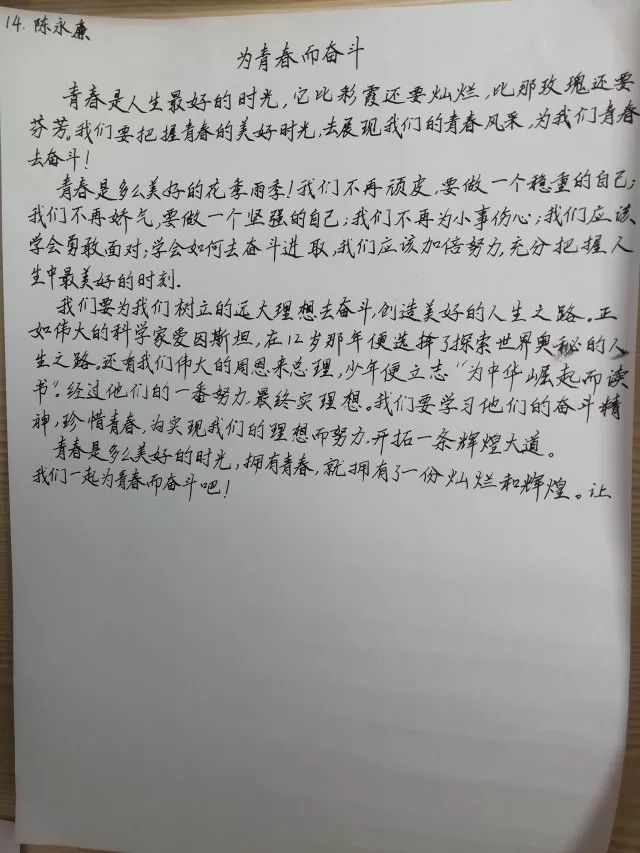 14. 陈永廉
为青春而奋斗
青春是人生最好的时光，它比彩霞还要灿烂，比那玫瑰还要
芬芳。我们要把握青春的美好时光，去展现我们的青春风采，为我们青春
去奋斗！
青春是多么美好的花季雨季！我们不再顽皮，要做一个稳重的自己；
我们不再娇气，要做一个坚强的自己；我们不再为小事伤心；我们应该
学会勇敢面对；学会如何去奋斗进取，我们应该加倍努力，充分把握人
生中最美好的时刻.
我们要为我们树立的远大理想去奋斗，创造美好的人生之路。正
如伟大的科学家爱因斯坦，在12岁那年便选择了探索世界奥秘的人
生之路。还有我们伟大的周恩来总理，少年便立志“为中华崛起而读
书”。经过他们的一番努力，最终实理想。我们要学习他们的奋斗精
神，珍惜青春，为实现我们的理想而努力，开拓一条辉煌大道。
青春是多么美好的时光，拥有青春，就拥有了一份灿烂和辉煌。让
我们一起为青春而奋斗吧！